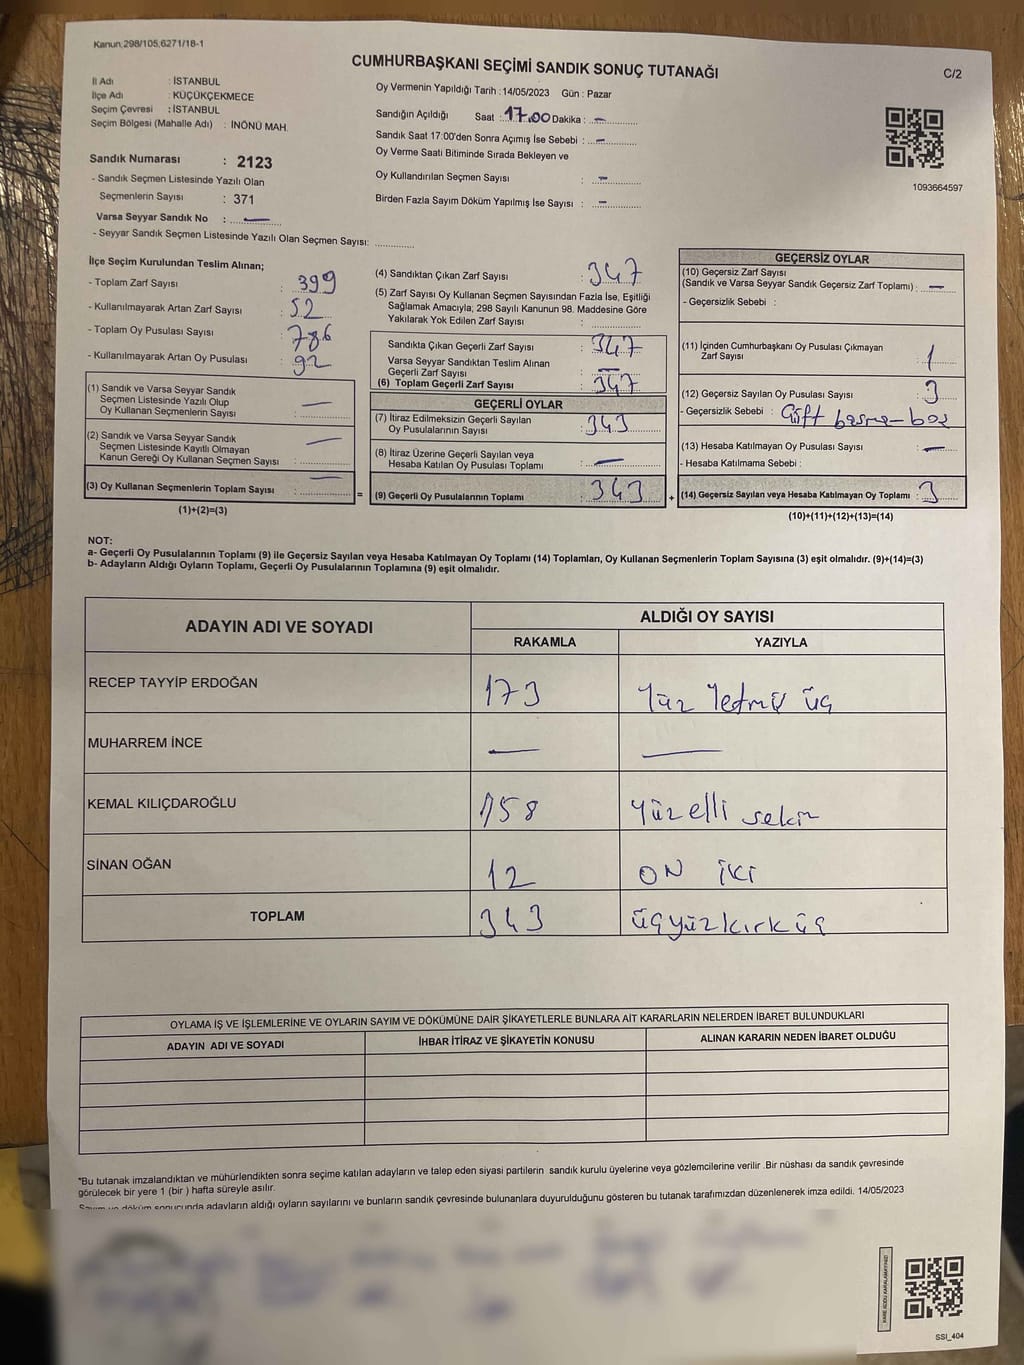 Kanun;298/105,6271/18-1
CUMHURBAŞKANI SEÇİMİ SANDIK SONUÇ TUTANAĞI
C/2
İl Adı : İSTANBUL
İlçe Adı : KÜÇÜKÇEKMECE
Seçim Çevresi : İSTANBUL
Seçim Bölgesi (Mahalle Adı) : İNÖNÜ MAH.
Sandık Numarası : 2123
- Sandık Seçmen Listesinde Yazılı Olan
Seçmenlerin Sayısı : 371
Varsa Seyyar Sandık No : —
- Seyyar Sandık Seçmen Listesinde Yazılı Olan Seçmen Sayısı: ............
Oy Vermenin Yapıldığı Tarih : 14/05/2023 Gün : Pazar
Sandığın Açıldığı Saat : 17.00 Dakika : —
Sandık Saat 17:00'den Sonra Açımış İse Sebebi : —
Oy Verme Saati Bitiminde Sırada Bekleyen ve
Oy Kullandırılan Seçmen Sayısı : —
Birden Fazla Sayım Döküm Yapılmış İse Sayısı : —
1093664597
İlçe Seçim Kurulundan Teslim Alınan;
- Toplam Zarf Sayısı : 399
- Kullanılmayarak Artan Zarf Sayısı : 52
- Toplam Oy Pusulası Sayısı : 786
- Kullanılmayarak Artan Oy Pusulası : 92
(1) Sandık ve Varsa Seyyar Sandık
Seçmen Listesinde Yazılı Olup
Oy Kullanan Seçmenlerin Sayısı : —
(2) Sandık ve Varsa Seyyar Sandık
Seçmen Listesinde Kayıtlı Olmayan
Kanun Gereği Oy Kullanan Seçmen Sayısı : —
(3) Oy Kullanan Seçmenlerin Toplam Sayısı : —
(1)+(2)=(3)
=
(4) Sandıktan Çıkan Zarf Sayısı : 347
(5) Zarf Sayısı Oy Kullanan Seçmen Sayısından Fazla İse, Eşitliği
Sağlamak Amacıyla; 298 Sayılı Kanunun 98. Maddesine Göre
Yakılarak Yok Edilen Zarf Sayısı : ............
Sandıkta Çıkan Geçerli Zarf Sayısı : 347
Varsa Seyyar Sandıktan Teslim Alınan
Geçerli Zarf Sayısı : —
(6) Toplam Geçerli Zarf Sayısı : 347
GEÇERLİ OYLAR
(7) İtiraz Edilmeksizin Geçerli Sayılan
Oy Pusulalarının Sayısı : 343
(8) İtiraz Üzerine Geçerli Sayılan veya
Hesaba Katılan Oy Pusulası Toplamı : —
(9) Geçerli Oy Pusulalarının Toplamı : 343
+
GEÇERSİZ OYLAR
(10) Geçersiz Zarf Sayısı
(Sandık ve Varsa Seyyar Sandık Geçersiz Zarf Toplamı) : —
- Geçersizlik Sebebi :
(11) İçinden Cumhurbaşkanı Oy Pusulası Çıkmayan
Zarf Sayısı : 1
(12) Geçersiz Sayılan Oy Pusulası Sayısı : 3
- Geçersizlik Sebebi : Çift basma-boş
(13) Hesaba Katılmayan Oy Pusulası Sayısı : —
- Hesaba Katılmama Sebebi :
(14) Geçersiz Sayılan veya Hesaba Katılmayan Oy Toplamı : 3
(10)+(11)+(12)+(13)=(14)
NOT:
a- Geçerli Oy Pusulalarının Toplamı (9) ile Geçersiz Sayılan veya Hesaba Katılmayan Oy Toplamı (14) Toplamları, Oy Kullanan Seçmenlerin Toplam Sayısına (3) eşit olmalıdır. (9)+(14)=(3)
b- Adayların Aldığı Oyların Toplamı, Geçerli Oy Pusulalarının Toplamına (9) eşit olmalıdır.
ADAYIN ADI VE SOYADI
ALDIĞI OY SAYISI
RAKAMLA YAZIYLA
RECEP TAYYİP ERDOĞAN 173 Yüz Yetmiş üç
MUHARREM İNCE — —
KEMAL KILIÇDAROĞLU 158 Yüzelli sekiz
SİNAN OĞAN 12 ON İKİ
TOPLAM 343 üçyüzkırküç
OYLAMA İŞ VE İŞLEMLERİNE VE OYLARIN SAYIM VE DÖKÜMÜNE DAİR ŞİKAYETLERLE BUNLARA AİT KARARLARIN NELERDEN İBARET BULUNDUKLARI
ADAYIN ADI VE SOYADI İHBAR İTİRAZ VE ŞİKAYETİN KONUSU ALINAN KARARIN NEDEN İBARET OLDUĞU
"Bu tutanak imzalandıktan ve mühürlendikten sonra seçime katılan adayların ve talep eden siyasi partilerin sandık kurulu üyelerine veya gözlemcilerine verilir .Bir nüshası da sandık çevresinde
görülecek bir yere 1 (bir ) hafta süreyle asılır.
Sayım ve döküm sonucunda adayların aldığı oyların sayılarını ve bunların sandık çevresinde bulunanlara duyurulduğunu gösteren bu tutanak tarafımızdan düzenlenerek imza edildi. 14/05/2023
KARE KODU KARALAMAYINIZ!
SSI_404